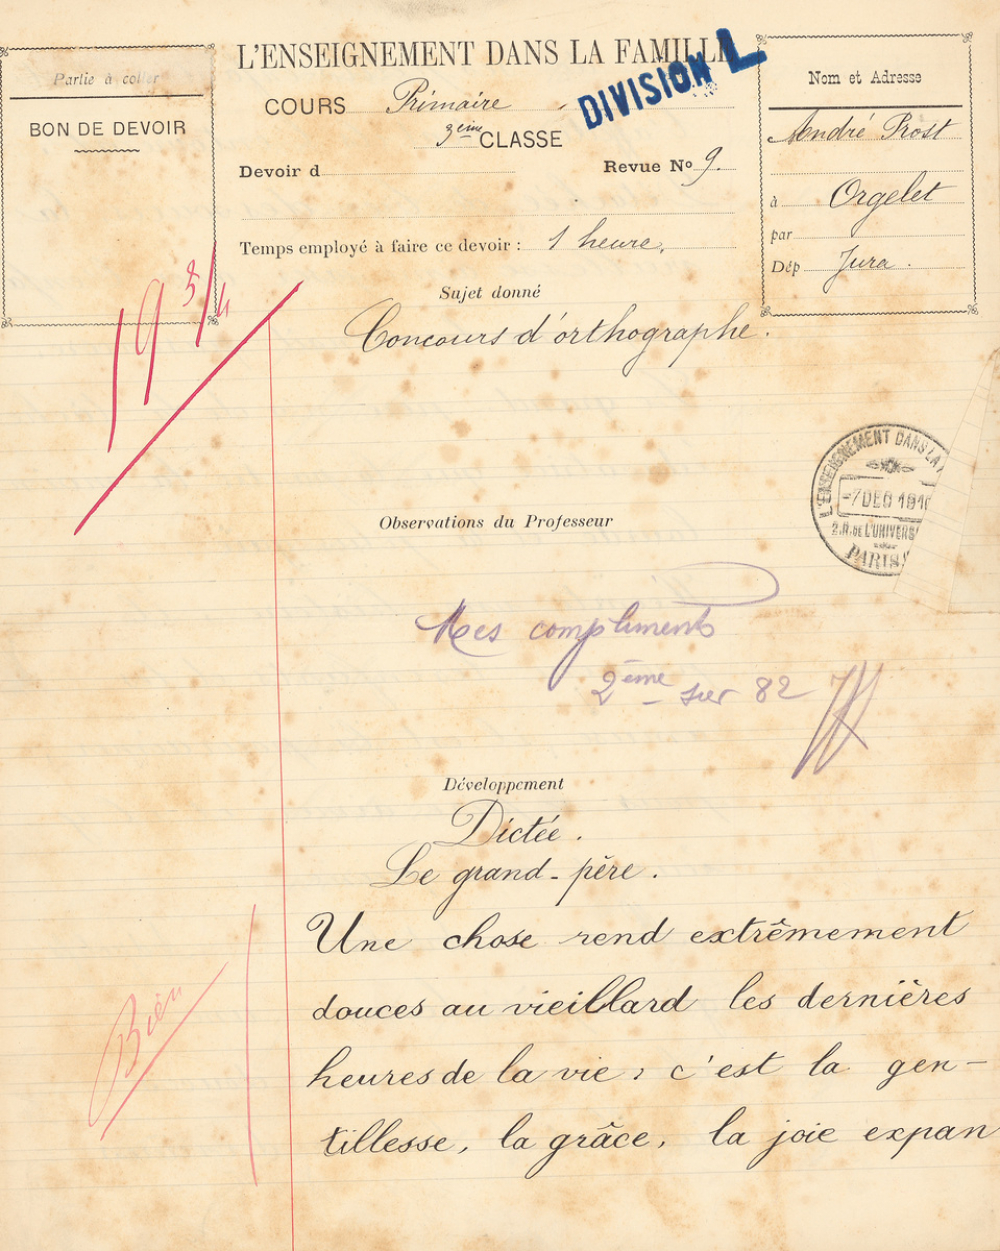 Partie à coller
BON DE DEVOIR
L'ENSEIGNEMENT DANS LA FAMILLE
DIVISION L
COURS Primaire
3ème CLASSE
Devoir d
Revue Nº 9.
Temps employé à faire ce devoir : 1 heure.
Nom et Adresse
André Prost
à Orgelet
par
Dép Jura.
19 3/4
Sujet donné
Concours d'orthographe.
L'ENSEIGNEMENT DANS LA
-7 DEC 191
2.R. DE L'UNIVERS
PARIS
Observations du Professeur
Mes compliments
2ème sur 82
Développement
Dictée.
Le grand-père.
Une chose rend extrêmement
douces au vieillard les dernières
heures de la vie; c'est la gen-
tillesse, la grâce, la joie expan
Bien